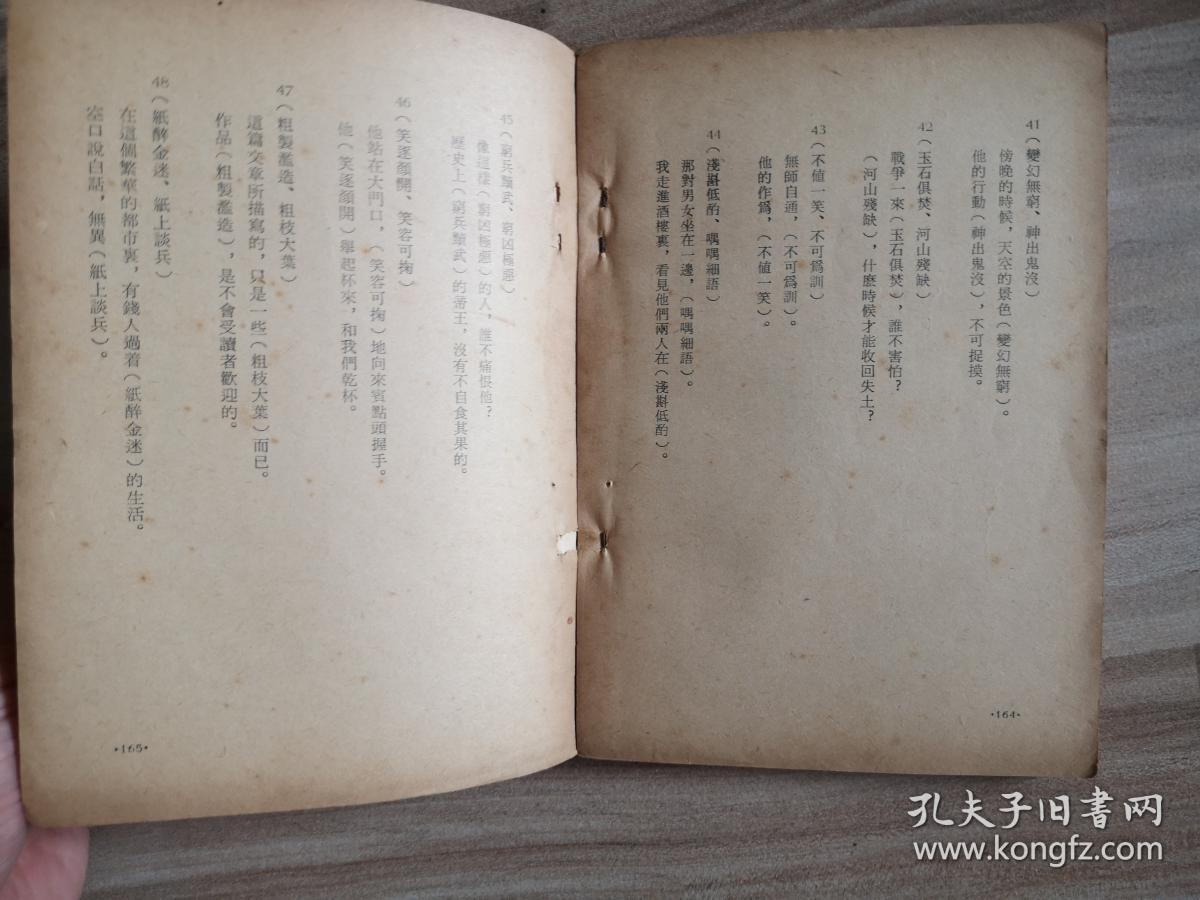 41（變幻無窮、神出鬼沒）
傍晚的時候，天空的景色（變幻無窮）。
他的行動（神出鬼沒），不可捉摸。
42（玉石俱焚、河山殘缺）
戰爭一來（玉石俱焚），誰不害怕？
（河山殘缺），什麼時候才能收回失土？
43（不值一笑、不可爲訓）
無師自通，（不可爲訓）。
他的作爲，（不值一笑）。
44（淺斟低酌、喁喁細語）
那對男女坐在一邊，（喁喁細語）。
我走進酒樓裏，看見他們兩人在（淺斟低酌）。
·164·
45（窮兵黷武、窮凶極惡）
像這樣（窮凶極惡）的人，誰不痛恨他？
歷史上（窮兵黷武）的帝王，沒有不自食其果的。
46（笑逐顏開、笑容可掬）
他站在大門口，（笑容可掬）地向來賓點頭握手。
他（笑逐顏開）舉起杯來，和我們乾杯。
47（粗製濫造、粗枝大葉）
這篇文章所描寫的，只是一些（粗枝大葉）而已。
作品（粗製濫造），是不會受讀者歡迎的。
48（紙醉金迷、紙上談兵）
在這個繁華的都市裏，有錢人過着（紙醉金迷）的生活。
空口說白話，無異（紙上談兵）。
·165·
孔夫子旧书网
www.kongfz.com